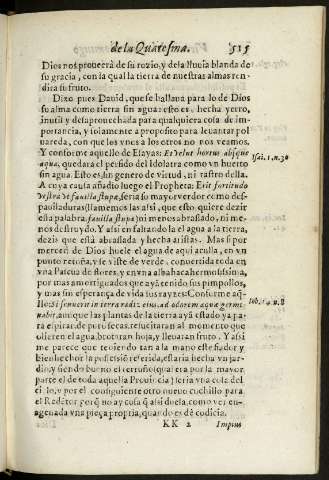 de la Quaresma. 515
Dios nos proueerà de su rozio, y de la lluuia blanda de
su gracia, con la qual la tierra de nuestras almas ren
dira su fruto.
Dixo pues Dauid, que se hallaua para lo de Dios
su alma como tierra sin agua: esto es, hecha yerro,
inutil y desaprouechada para qualquiera cosa de im-
portancia, y solamente a proposito para leuantar pol
uareda, con que los vnos a los otros no nos veamos.
Y conforme aquello de Esayas: Et velut hortus absque
aqua, quedara el persido del Idolatra como vn huerto
sin agua. Esto es, sin genero de virtud, ni rastro della.
A cuya causa añadio luego el Propheta: Erit fortitudo
vestra vt fauilla stupæ, sera su mayor verdor como des-
(llamemos las assi, que esso quiere dezir
esta palabra, fauilla stupæ) ni menos abrasado, ni me-
nos destruydo. Y assi en faltando la el agua a la tierra,
dezis que està abrasada y hecha aristas. Mas si por
merced de Dios huele el agua de aqui a cula, en vn
punto retoña, y se viste de verde, conuertida toda en
vna Pascua de flores, y en vna alhabaca hermosissima,
por mas amortiguados que aya tenido sus pimpollos,
y mas sin esperança de vida sus rayzes: Conforme aq̃-
llo: Si senuerit in terra radix eius, ad odorem aquæ germi
nabit, aunque las plantas de la tierra aya estado ya pa-
ra espirar de puro secas, resucitaran al momento que
olieren el agua, brotaran hoja, y lleuaran fruto. Y assi
me parece que teniendo tan a la mano este fiador y
bienhechor la possessiõ referida, estaria hecha vn jar-
din, y siendo bueno el terruño (qual era por la mayor
parte el de toda aquella Prouincia) seria vna cosa del
cielo, y por el consiguiente otro nueuo cuchillo para
el Redẽtor porq̃ no ay cosa q̃ assi duela, como ver en-
agenada vna pieça propria, quando es de codicia.
KK 2 Impius
Isai. 1. n. 30
Iob. 14. n. 8